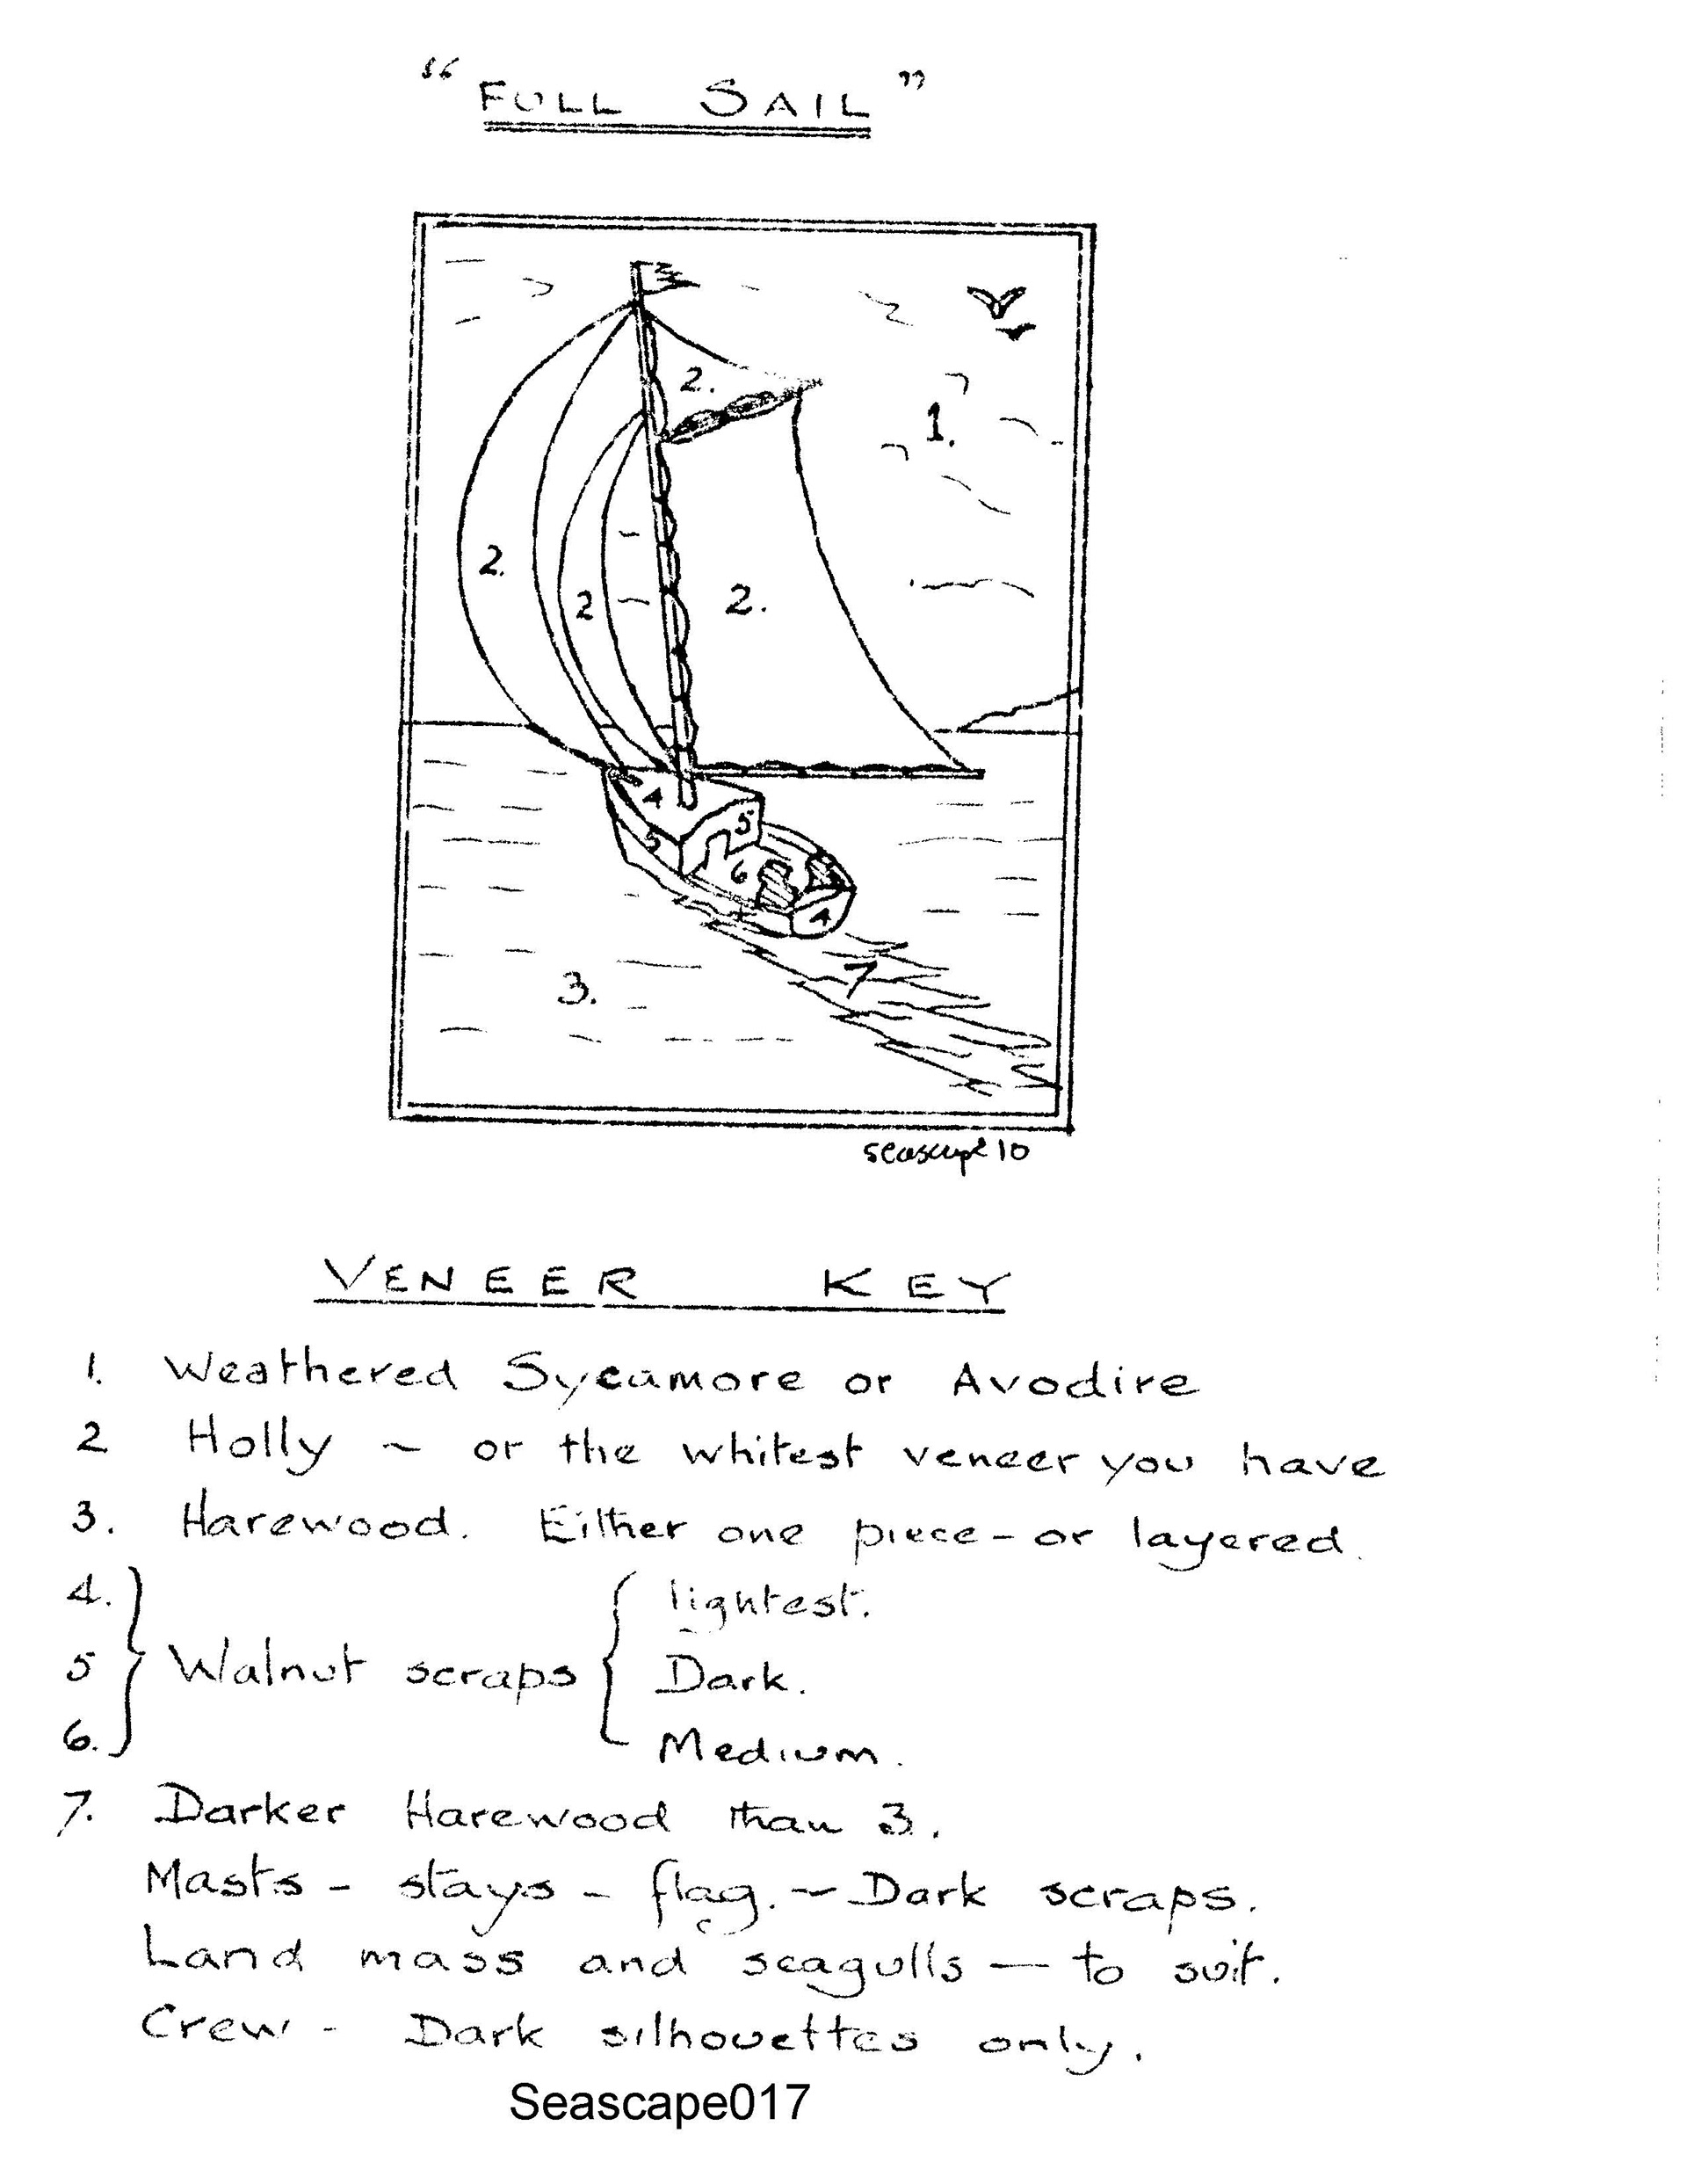 “FULL SAIL”
2.
1.
2.
2
2.
4
5
5
6
4
7
3.
seascape 10
VENEER KEY
1. Weathered Sycamore or Avodire
2 Holly ~ or the whitest veneer you have
3. Harewood. Either one piece – or layered.
4. lightest.
5 Walnut scraps Dark.
6. Medium.
7. Darker Harewood than 3.
Masts – stays – flag. ~ Dark scraps.
Land mass and seagulls — to suit.
Crew – Dark silhouettes only.
Seascape017